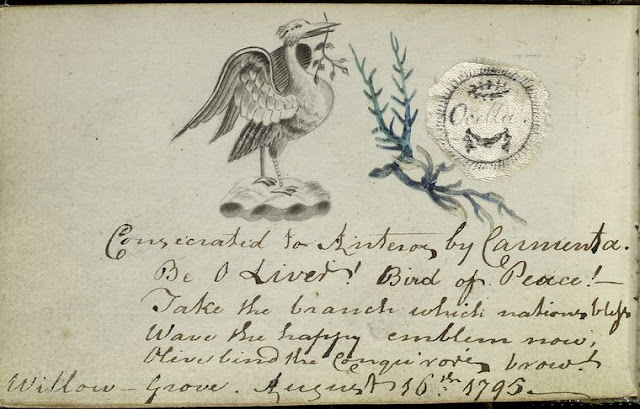 Ocella.
Consecrated to Anteros by Carmenta.
Be O Liver! Bird of Peace!—
Take the branch which nations bless
Wave the happy emblem now;
Olive bind the Conquirors brow!
Willow–Grove. August 16th. 1795.